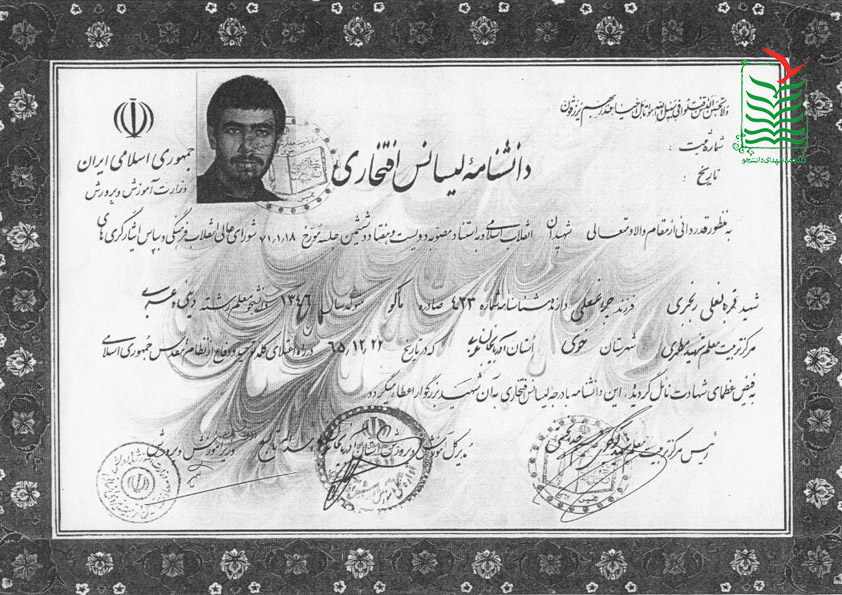 ولا تحسبن الذین قتلوا فی سبیل الله امواتا بل احیاء عند ربهم یرزقون
جمهوری اسلامی ایران
وزارت آموزش و پرورش
دانشنامهٔ لیسانس افتخاری
شماره ثبت :
تاریخ :
به منظور قدردانی از مقام والا و متعالی شهیدان انقلاب اسلامی و به استناد مصوبه دویست و هفتاد و ششمین جلسه مورخ ۷۱/۱/۱۸ شورای عالی انقلاب فرهنگی و بپاس ایثارگری های
شهید قربانعلی رنجبری فرزند دارنده شناسنامه شماره ۴۲۳ صادره ماکو متولد سال ۱۳۴۶ دانشجو معلم رشته دینی و عربی
مرکز تربیت معلم شهید مطهری شهرستان خوی استان آذربایجان غربی که در تاریخ ۶۵/۱۲/۲۲ در راه اعتلای کلمه توحید و دفاع از نظام مقدس جمهوری اسلامی
به فیض عظمای شهادت نائل گردید. این دانشنامه با درجه لیسانس افتخاری به آن شهید بزرگوار اعطا میگردد
رئیس مرکز تربیت معلم
مدیر کل آموزش و پرورش استان
وزیر آموزش و پرورش